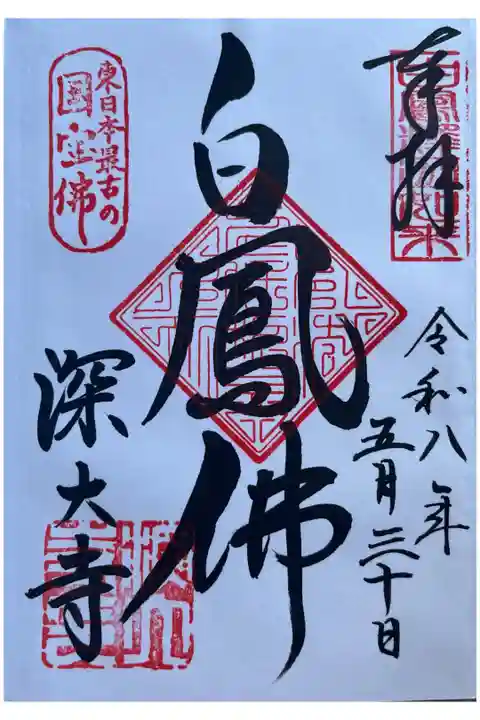 奉拝
令和八年
五月三十日
白鳳佛
東日本最古の
国宝佛
深大寺